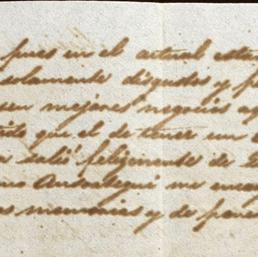 pues en el actual esta
solamente disgustos y p
sen mejores negocios a
que el de tener un
salió felizmente de
Ansoategui me enca
memorias y de pare